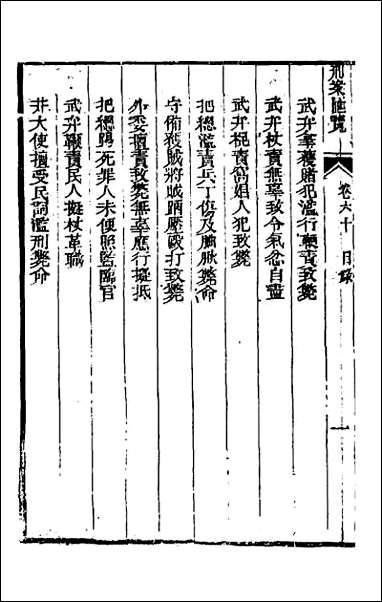 刑案匯覽
卷六十 目錄
一
武弁拏獲賭犯濫行鞭責致斃
武弁杖責無辜致令氣忿自盡
武弁棍責窩娼人犯致斃
把總濫責兵丁傷及臁肕斃命
守備獲賊將賊踊壓毆打致斃
外委擅責致斃無辜應行擬抵
把總踢死罪人未便照監臨官
武弁鞭責民人擬杖革職
井大使擅受民詞濫刑斃命